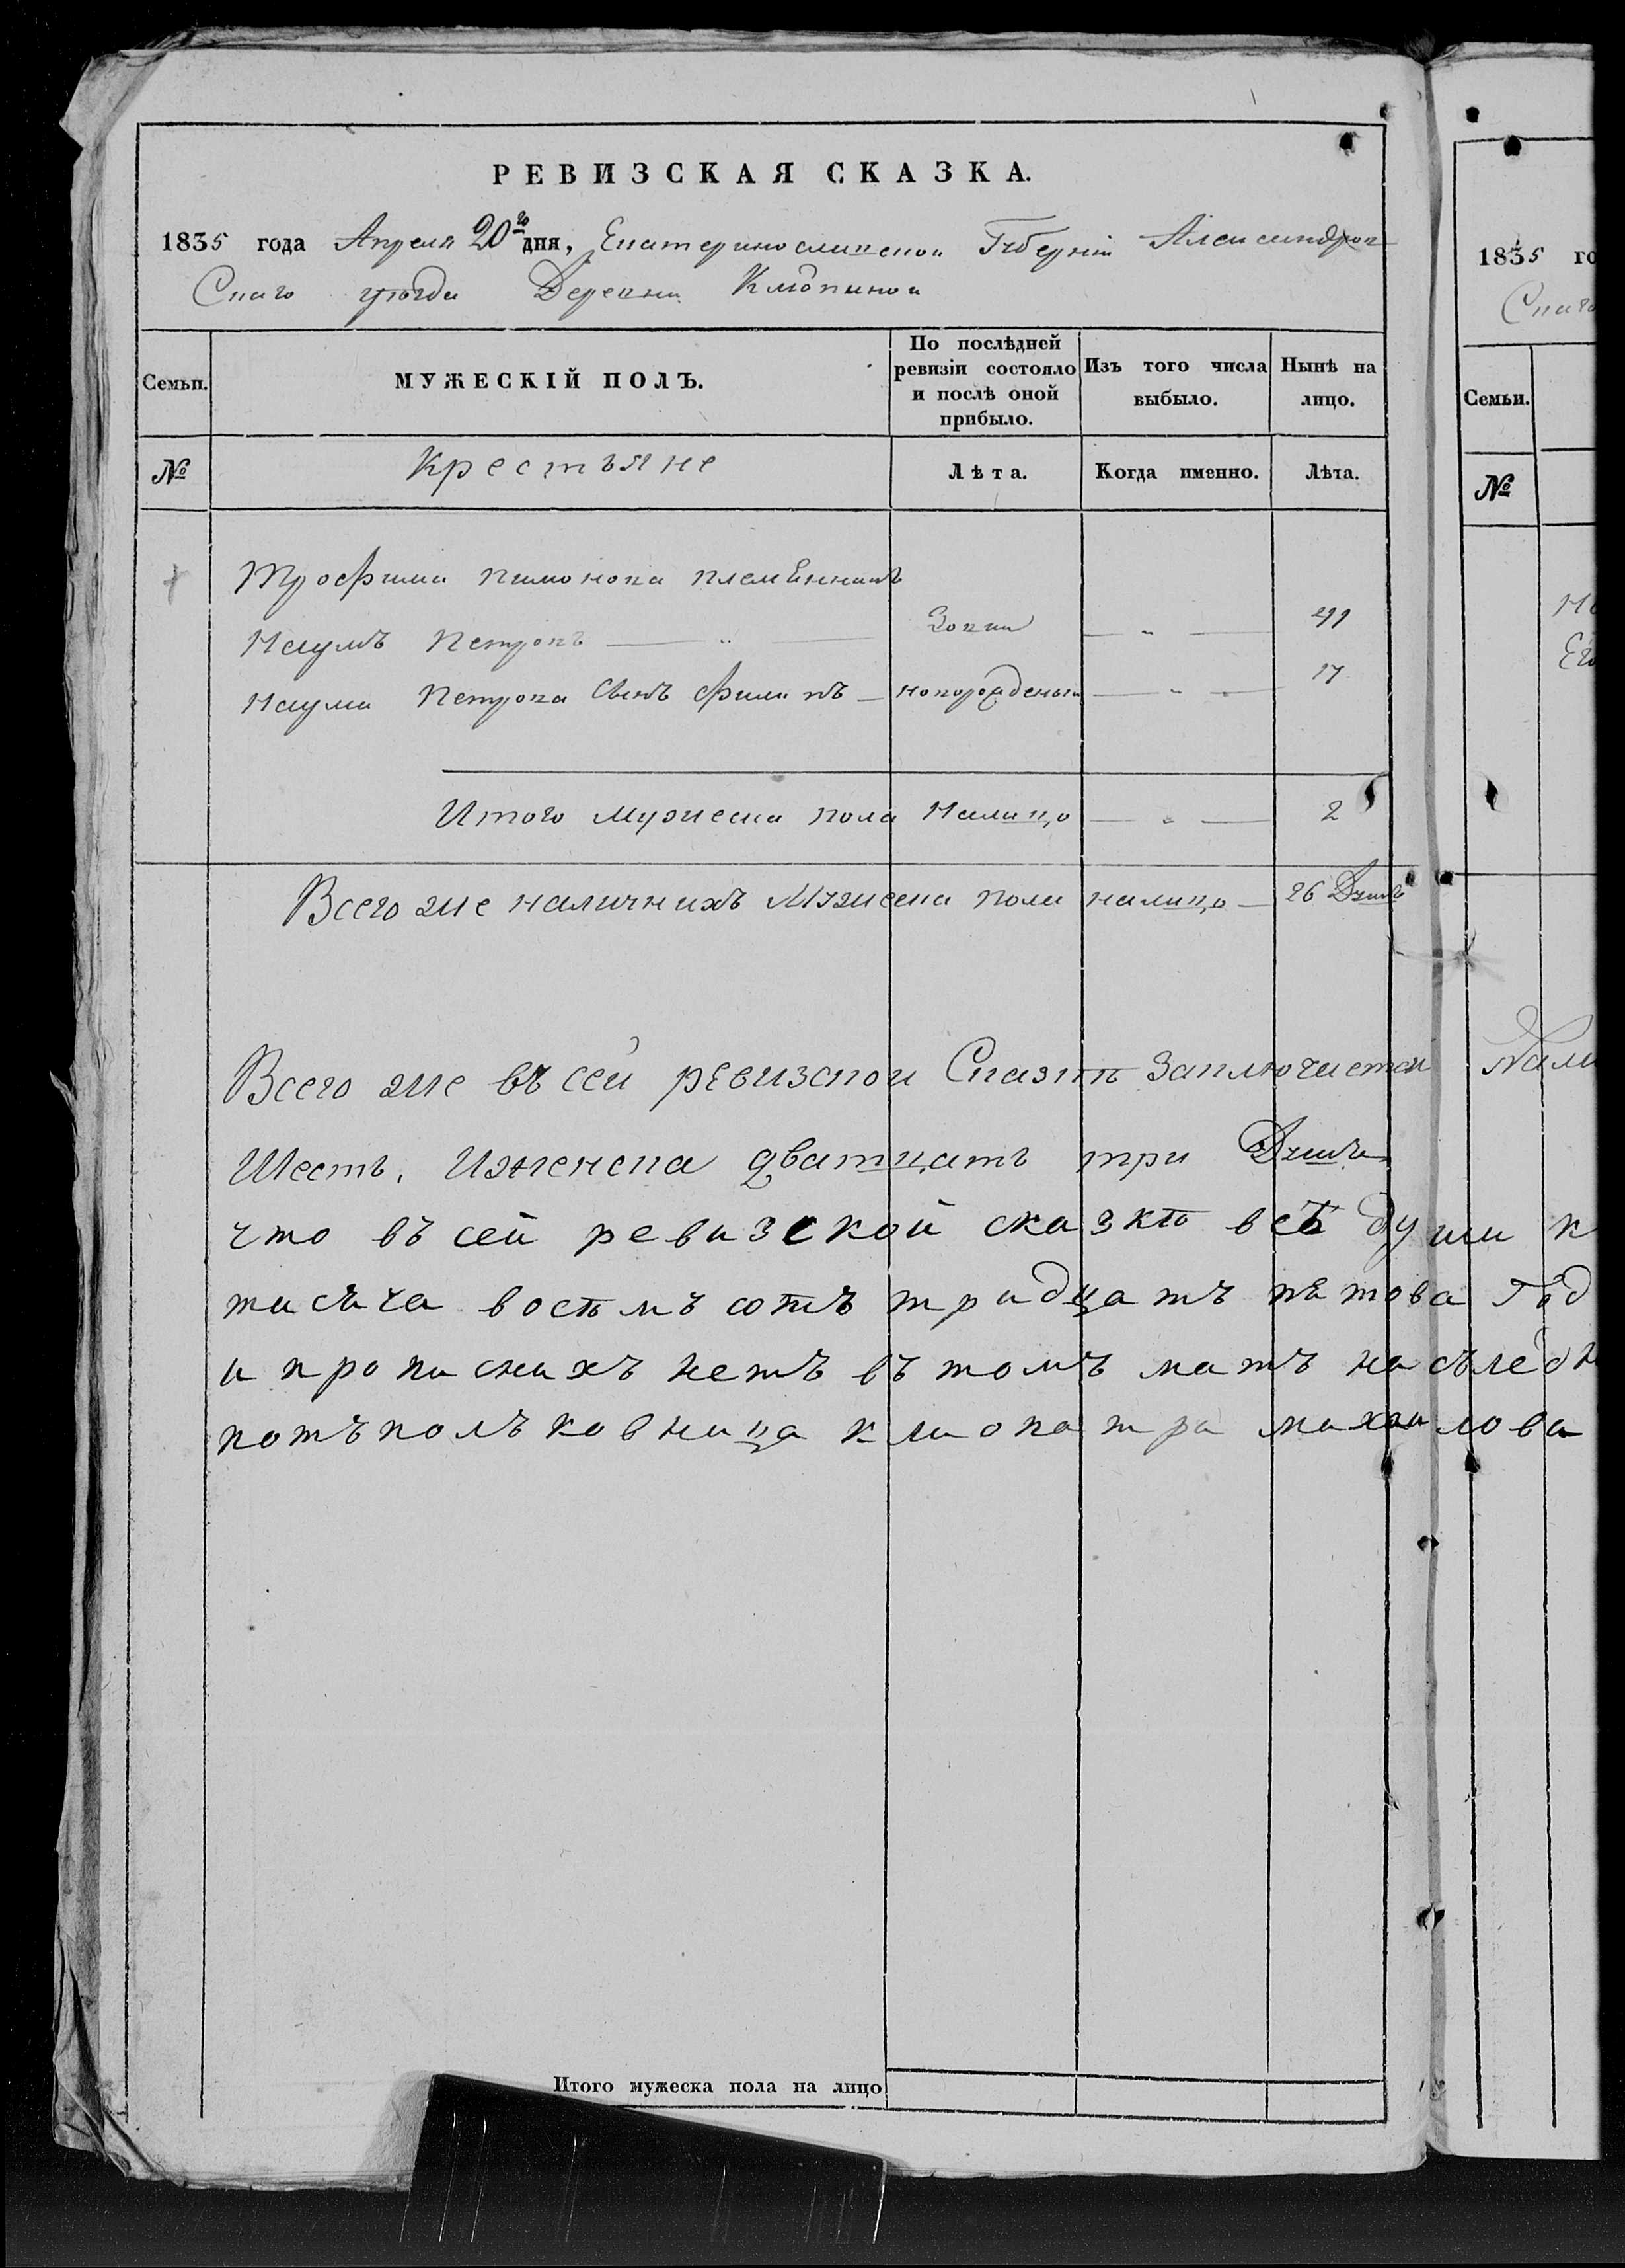 РЕВИЗСКАЯ СКАЗКА.
1835 года Апреля 20го дня, Екатеринославской Губерніи Александров
Скаго уѣзда Деревни
Семьи.
МУЖЕСКІЙ ПОЛЪ.
По послѣдней ревизіи состояло и послѣ оной прибыло.
Изъ того числа выбыло.
Нынѣ на лицо.
№
Крестъяне
Лѣта.
Когда именно.
Лѣта.
Трофима Пимонова племенникъ
Наумъ Петровъ — " —
— " —
Наума Петрова Сынъ Филипъ — новорожденый — " — 17
Итого Мужеска пола Налицо — " — 2
Всего же наличнихъ Мужеска пола налицо — 26 Душъ
Всего же въ сей ревизской Сказкѣ Заключается
Шесть, Иженска дватцать три Души
что въ сей ревизской сказкѣ всѣ души к
тисъча востъмъ сотъ тридцатъ пѣтова Год
и прописнихъ нетъ въ томъ матъ насълед
потъполъковница клиопатра михаилова
Итого мужеска пола на лицо
1835 го
Скаго
Семьи.
№
Его